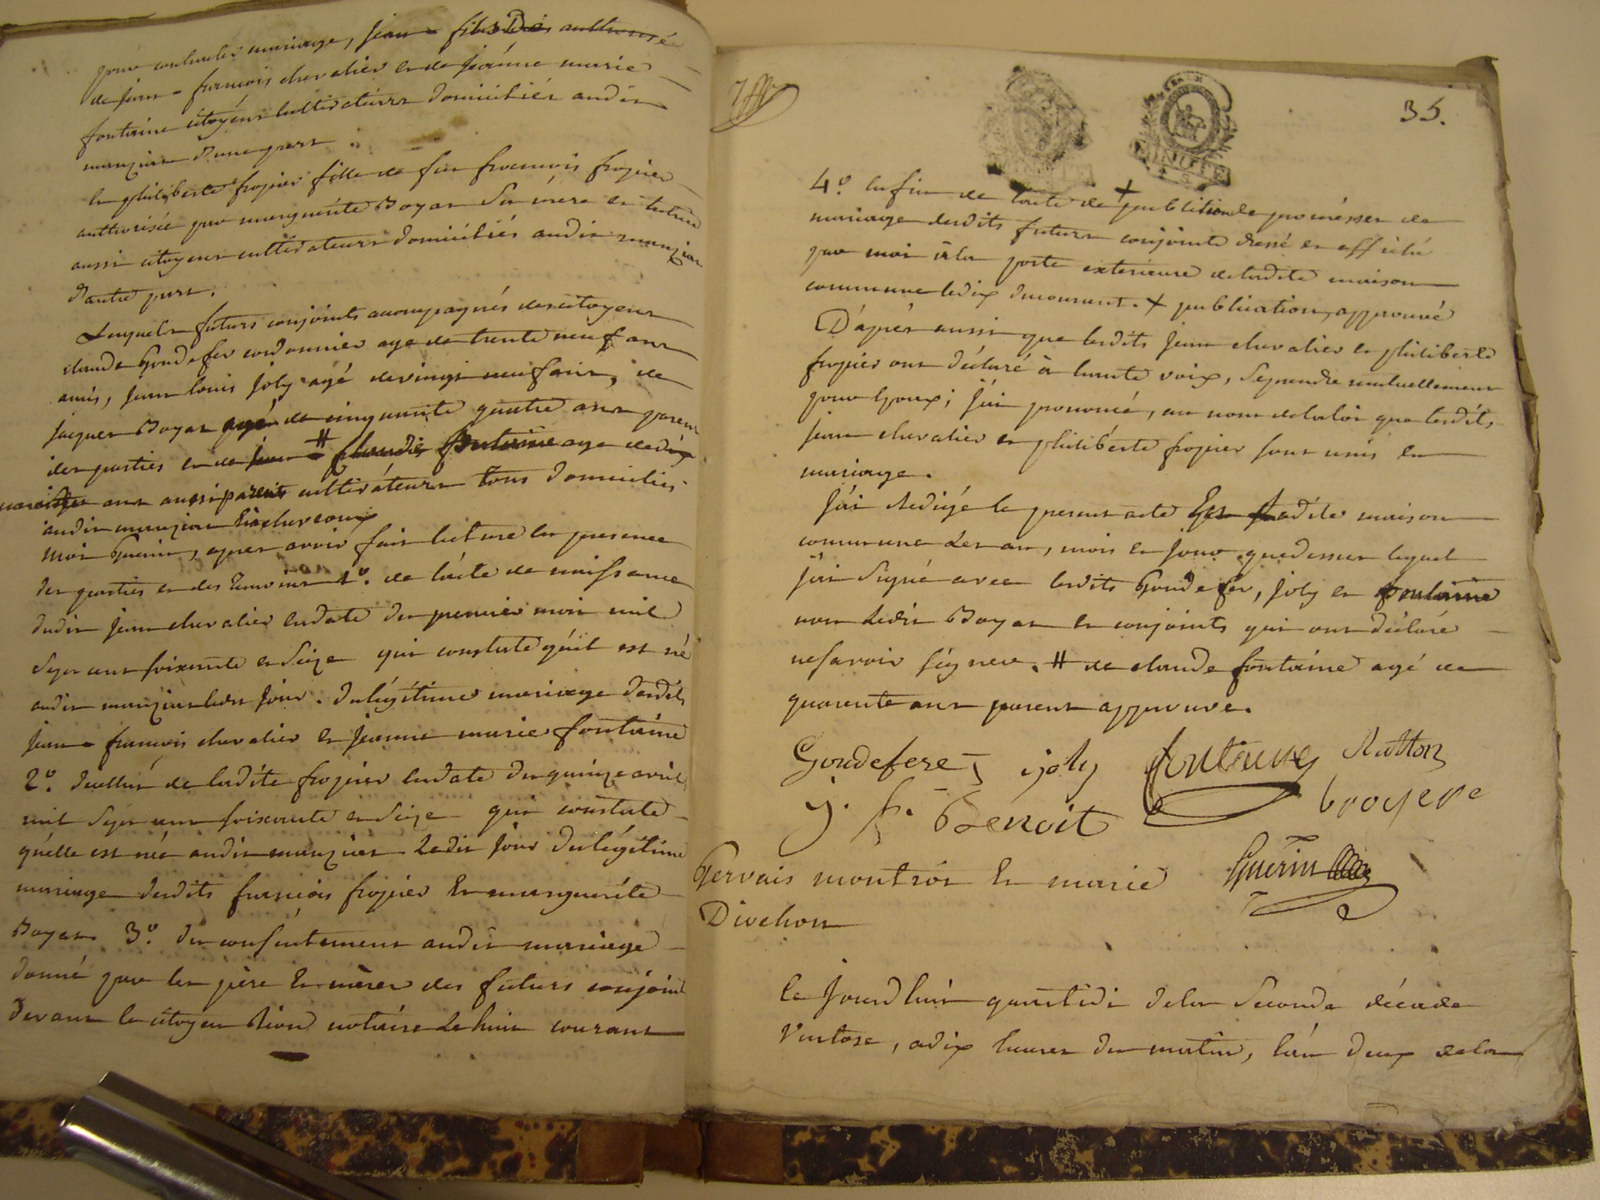 pour contracter mariage, jean = fils autorisé
de jean = francois chevalier et de jeanne marie
fontaine citoyens cultivateurs domiciliés audit
manziat d'une part.
et philiberte fropier fille de feu francois fropier
authorisée par marguerite Boyat sa mere et tutrice
aussi citoyens cultivateurs domiciliés audit manziat
d'autre part.
Lesquels futurs conjoints accompagnés des citoyens
claude Gondefer cordonnier age de trente neuf ans
amis, jean louis joly agé de vingt neuf ans, de
jacques Boyat agé de cinquante quatre ans parent
des parties et de # claude fontaine age de
ans aussi parents cultivateurs tous domiciliés
audit manziat
moi Guerin, apres avoir fait lecture en presence
des parties et des temoins 1°. de l'acte de naissance
dudit jean chevalier en date du premier mai mil
sept cent soixante et seize qui constate qu'il est né
audit manziat ledit jour. du légitime mariage desdits
jean = francois chevalier et jeanne marie fontaine
2°. de celui de ladite fropier en date du quinze avril
mil sept cent soixante et seize qui constate
qu'elle est née audit manziat ledit jour du légitime
mariage desdits francois fropier et marguerite
Boyat. 3°. du consentement audit mariage
donné par les père et mères des futurs conjoints
devant le citoyen notaire le huit courant
35.
4°. enfin de l'acte de + publication de promesses de
mariage desdits futurs conjoints dressé et affiché
par moi à la porte exterieure de ladite maison
commune le dix du courant. + publication, approuvé
D'après aussi que lesdits jean chevalier et philiberte
fropier ont déclaré à haute voix, se prendre mutuellement
pour époux; j'ai prononcé, au nom de la loi que lesdits
jean chevalier et philiberte fropier sont unis en
mariage.
j'ai rédigé le present acte en ladite maison
commune les an, mois et jour que dessus lequel
j'ai signé avec lesdits Gondefer, joly et fontaine
non ledit Boyat et conjoints qui ont déclaré
ne savoir signer. # de claude fontaine agé de
quarante ans parent approuvé.
Gondefere joly fontaine Natton
j. f. Benoit broyere
Gervais montrót et marie Guerin
Divchon
Ce jourd'huy quintidi de la seconde décade
Ventose, a dix heures du matin, l'an deux de la